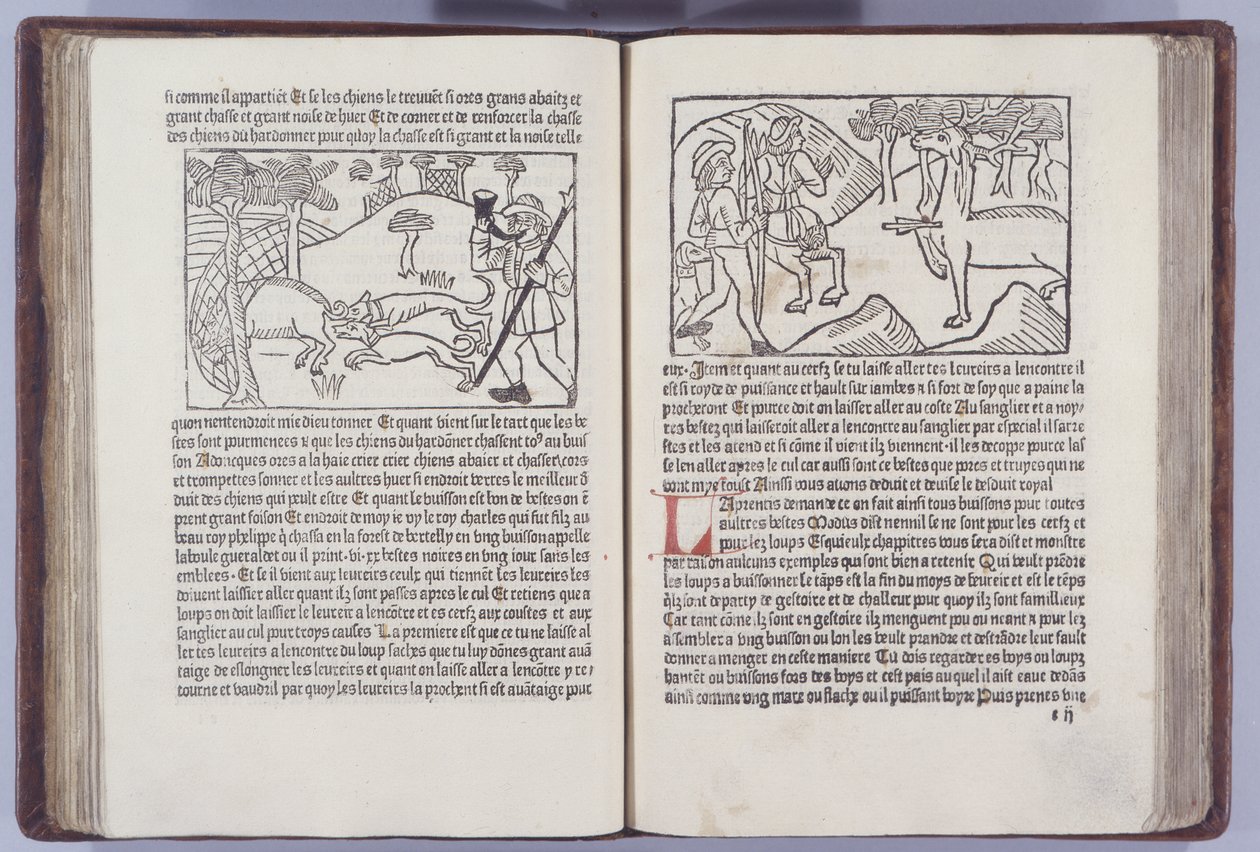 si comme il appartiēt Et se les chiens le treuuēt si ores grans abaitz et
grant chasse et grant noise de huer Et de corner et de renforcer la chasse
des chiens du hardonner pour quoy la chasse est si grant et la noise telle
quon nentendroit mie dieu tonner Et quant vient sur le tart que les be
stes sont pourmenees ⁊ que les chiens du hardōner chassent toꝰ au buis
son Adoncques ores a la haie crier crier chiens abaier et chasser cors
et trompettes sonner et les aultres huer si endroit verres le meilleur d
duit des chiens qui peult estre Et quant le buisson est bon de bestes on ē
prent grant foison Et endroit de moy ie vy le roy charles qui fut filz au
beau roy phelippe q̄ chassa en la forest de bertelly en vng buisson appelle
la boule gueraldet ou il print ·vi·xx bestes noires en vng iour sans les
emblees· Et se il vient aux leureirs ceulx qui tiennēt les leureirs les
doiuent laissier aller quant ilz sont passes apres le cul Et retiens que a
loups on doit laissier le leureir a lencōtre et es cerfz aux coustes et aux
sanglier au cul pour troys causes La premiere est que ce tu ne laisse al
ler tes leureirs a lencontre du loup saches que tu luy dōnes grant auā
taige de eslongner les leureirs et quant on laisse aller a lencōtre y re
tourne et vaudril par quoy les leureirs la prochent si est auātaige pour
eux· Item et quant au cerfz se tu laisse aller tes leureirs a lencontre il
est si royde de puissance et hault sur iambes ⁊ si fort de soy que a paine la
procheront Et pource doit on laisser aller au coste Au sanglier et a noy
res bestez qui laisseroit aller a lencontre au sanglier par especial il sarre
stes et les atend et si cōme il vient ilz viennent· il les decoppe pource las
se len aller apres le cul car aussi sont ce bestes que pores et truyes qui ne
vont mye toust Ainssi vous auons deduit et deuise le desduit royal
LAprentis demande ce on fait ainsi tous buissons pour toutes
aultres bestes Modus dist nennil se ne sont pour les cerfz et
pour lez loups Esquieulx chappitres vous sera dist et monstre
par raison aulcuns exemples qui sont bien a retenir Qui veult prēdre
les loups a buissonner le tāps est la fin du moys de feureir et est le tēps
q̄lz sont departy de gestoire et de challeur pour quoy ilz sont familleux
Car tant cōme ilz sont en gestoire ilz menguent pou ou neant ⁊ pour lez
assembler a vng buisson ou lon les veult prandre et destrādre leur fault
donner a menger en ceste maniere Tu dois regarder es boys ou loupz
hantēt ou buissons fors des boys et cest pais au quel il aist eaue dedās
ainsi comme vng mare ou flache ou il puissant boyre Puis prenes vne
e ij